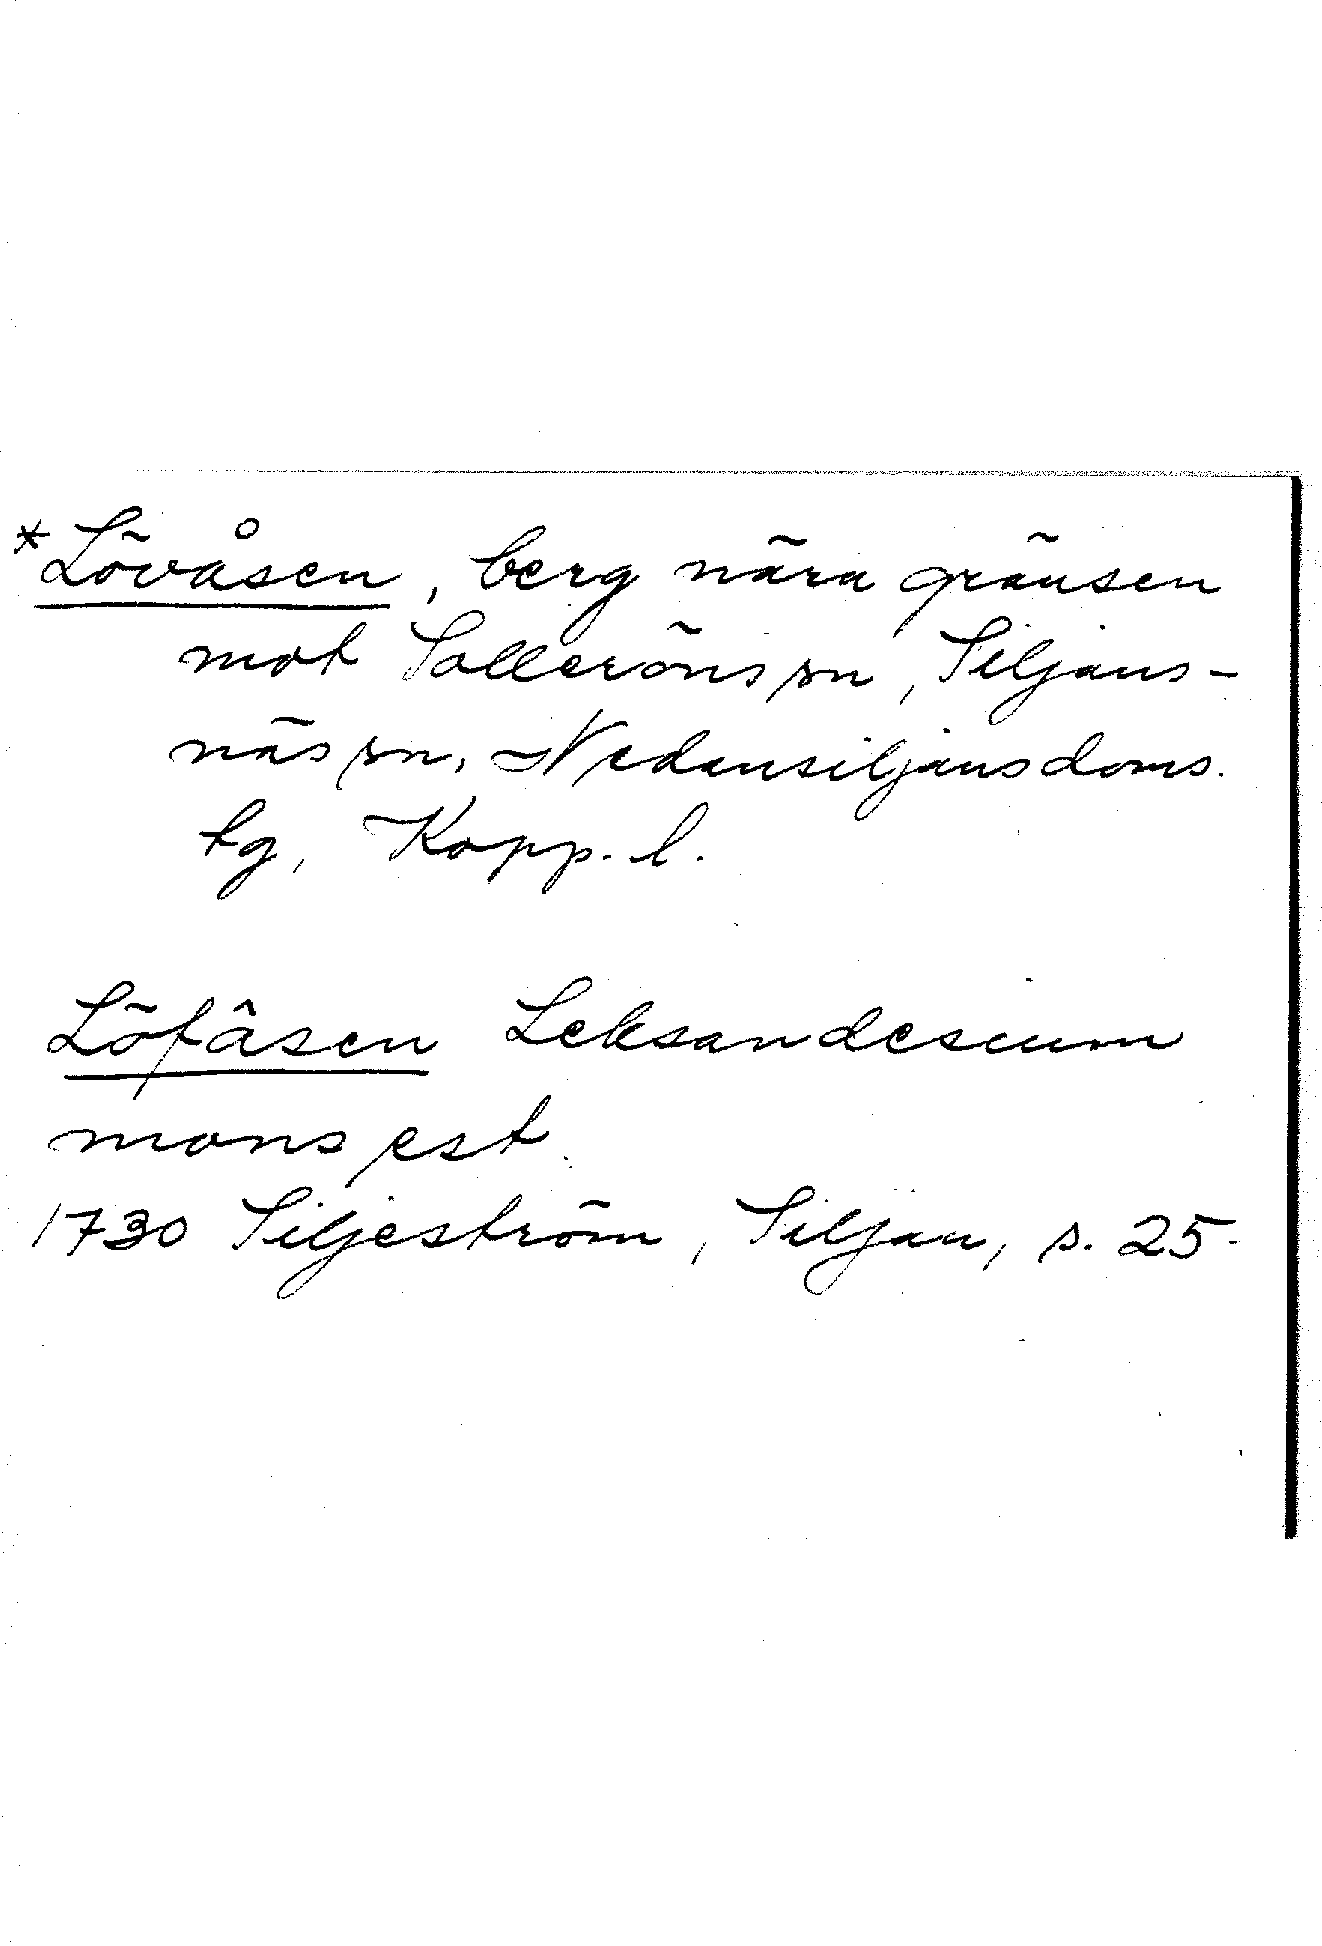 *Lövåsen, berg nära gränsen
mot Solleröns sn, Siljans-
näs sn, Nedansiljans doms.
tg, Kopp. l.
Löfâsen Leksandesium
mons est
1730 Siljeström, Siljan, s. 25.